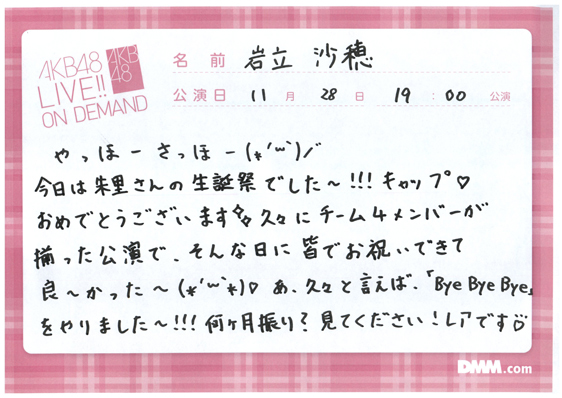 AKB48
LIVE!!
ON DEMAND
AKB
48
名前 岩立 沙穂
公演日 11月 28日 19:00 公演
やっほーさっほー(*´ω`)ノ
今日は朱里さんの生誕祭でした〜!!!キャップ♡
おめでとうございます✨久々にチーム4メンバーが
揃った公演で、そんな日に皆でお祝いできて
良〜かった〜(*´ω`*)♡ あ、久々と言えば、「Bye Bye Bye」
をやりました〜!!!何ヶ月振り?見てください!レアです♡
DMM.com